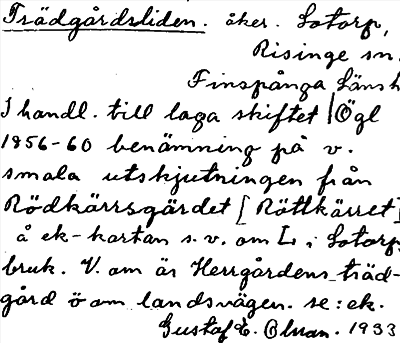 Trädgårdsliden. åker. Sotorp,
Risinge sn.
Finspånga länsh
I handl. till laga skiftet | Ögl
1856-60 benämning på v.
smala utskjutningen från
Rödkärrsgärdet [Röttkärret]
å ek-kartan s.v. om L. i Sotorp
bruk. V. om är Herrgårdens träd-
gård ö om landsvägen. se: ek.
Gustaf E. 1933